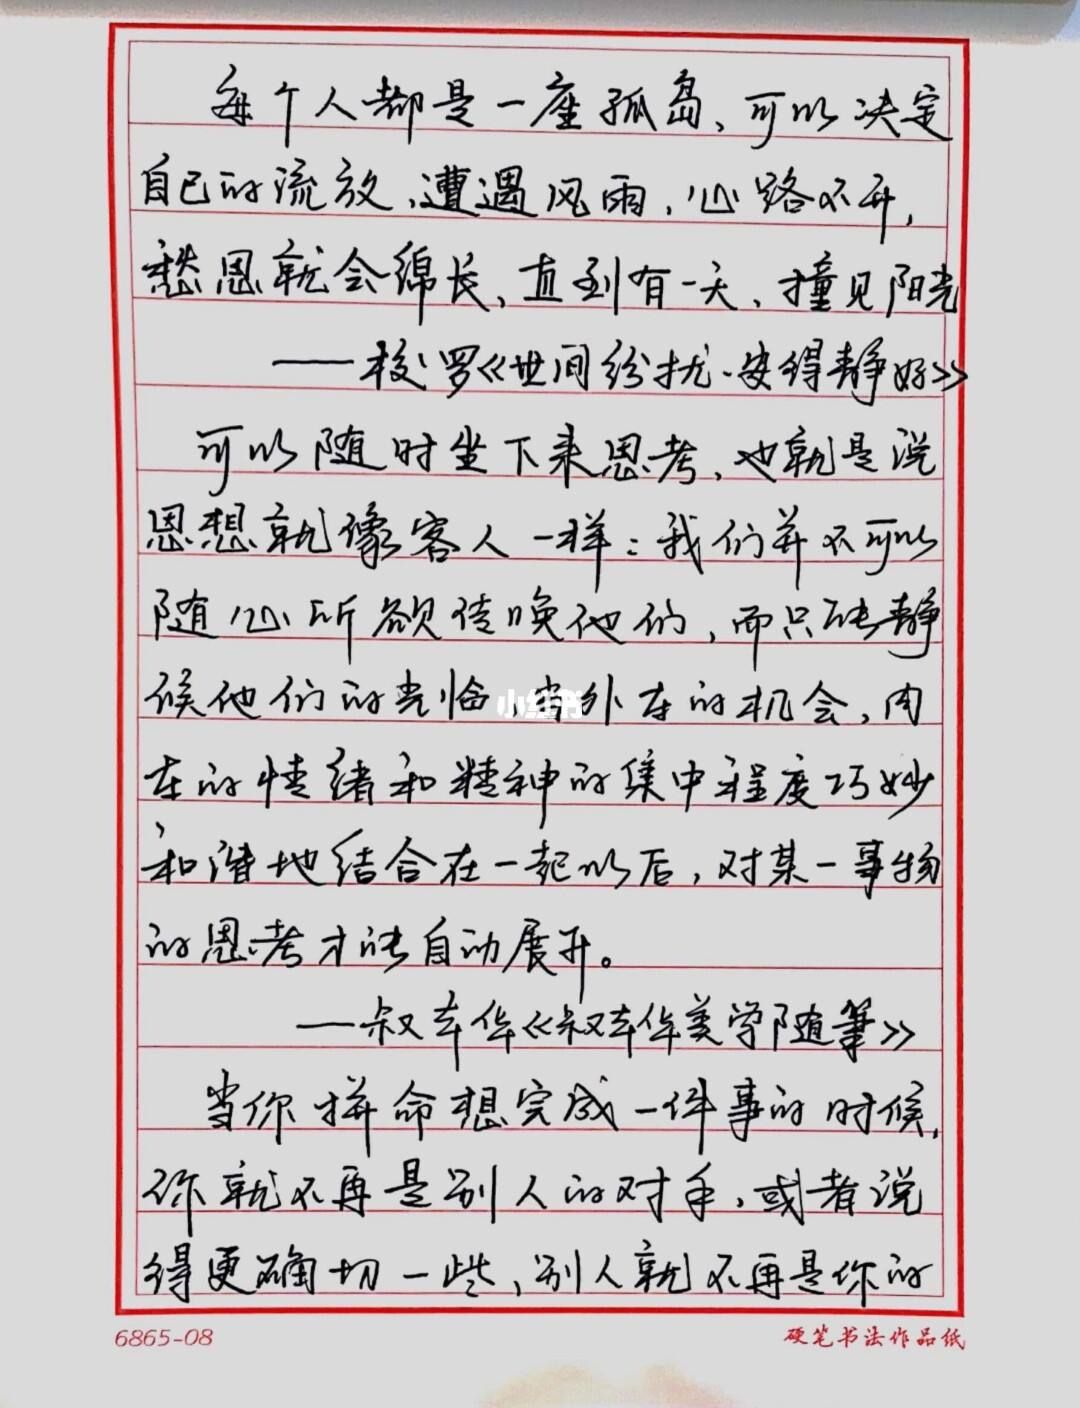 每个人都是一座孤岛、可以决定
自己的流放、遭遇风雨，心路不开，
愁思就会绵长、直到有一天、撞见阳光
——校罗《世间纷扰、安得静好》
可以随时坐下来思考，也就是说
思想就像客人一样：我们并不可以
随心所欲传唤他们，而只能静
候他们的光临，当外在的机会，内
小红书
在的情绪和精神的集中程度巧妙
和谐地结合在一起以后，对某一事物
的思考才能自动展开。
——叔本华《叔本华美学随筆》
当你拼命想完成一件事的时候，
你就不再是别人的对手，或者说
得更确切一些，别人就不再是你的
6865-08
硬笔书法作品纸